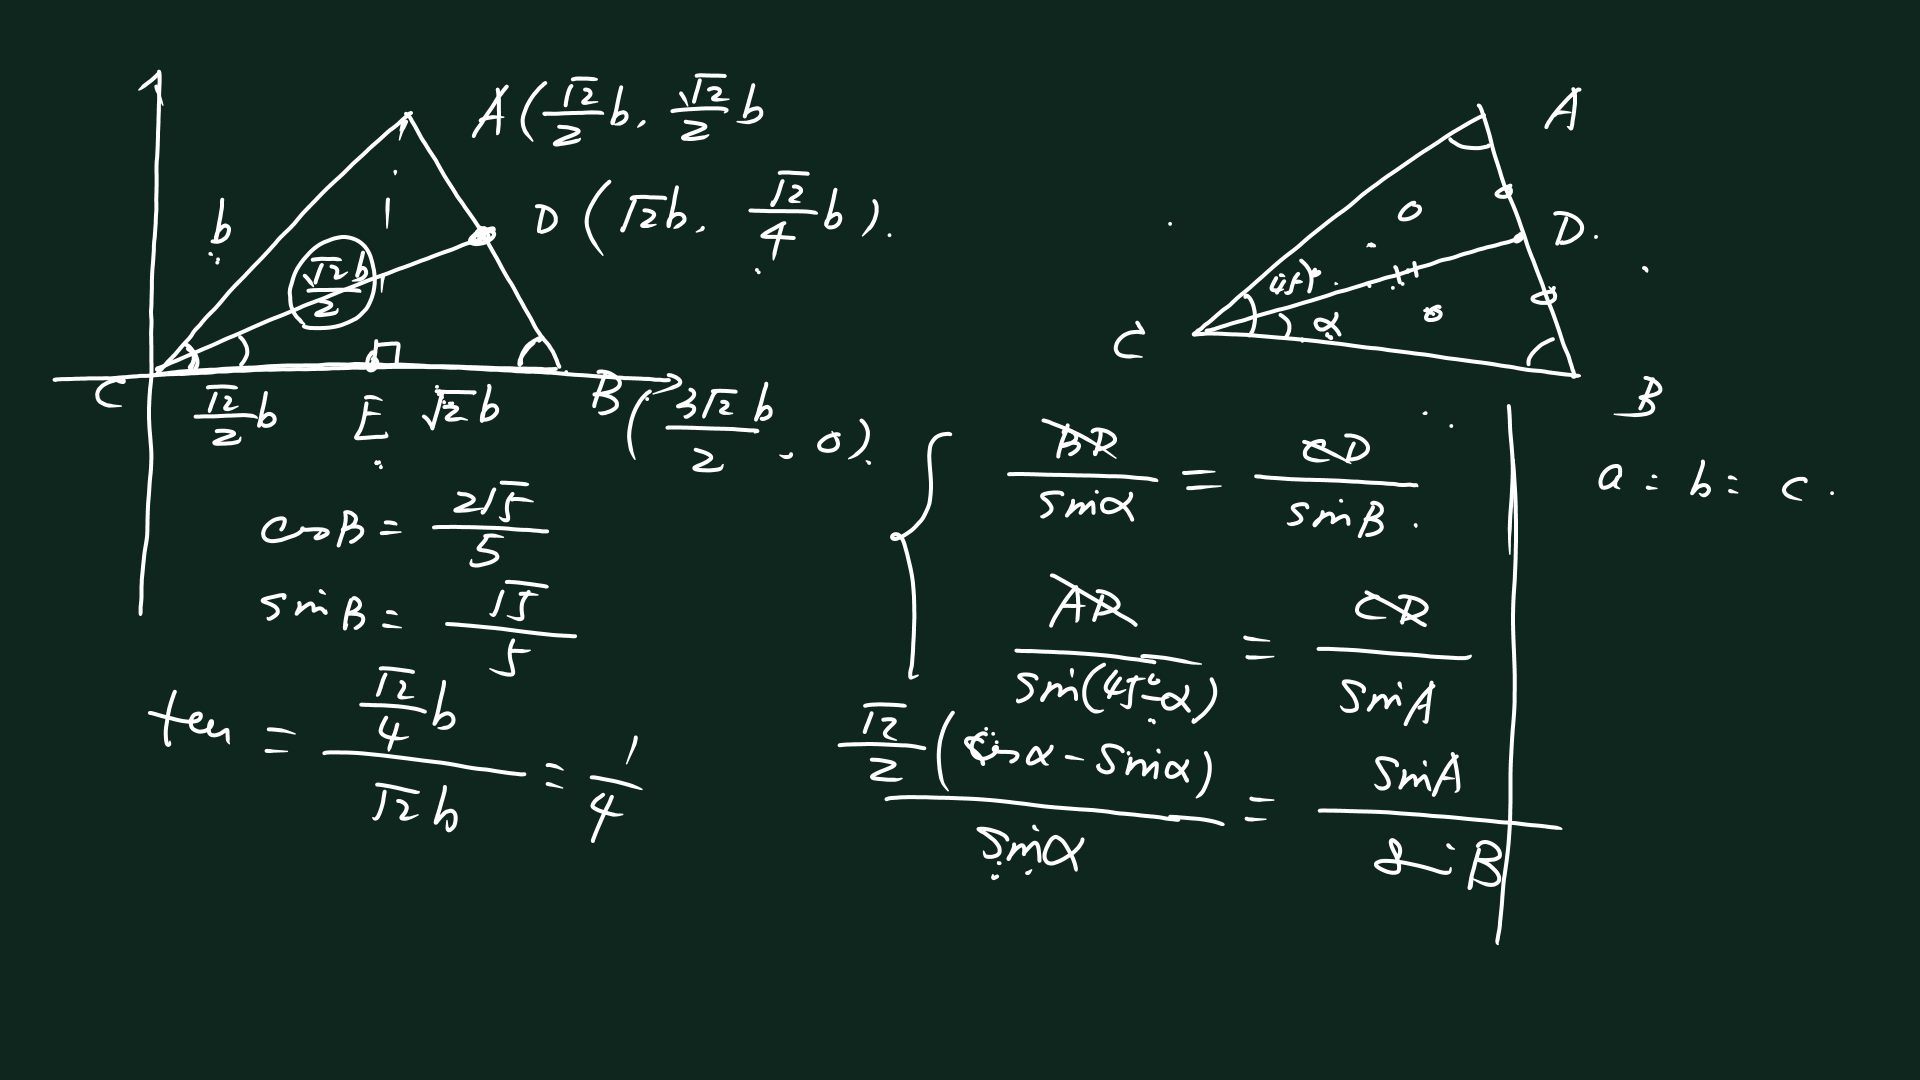 A(√2/2 b, √2/2 b
D(√2b, √2/4 b).
b
√2/2 b
C
√2/2 b
E
√2 b
B(3√2 b/2, 0)
cosB = 2√5/5
sinB = √5/5
tan = (√2/4 b)/(√2b) = 1/4
A
D.
45°
α
C
B
BD/sinα = CD/sinB.
AD/sin(45°-α) = CD/sinA
√2/2(cosα - sinα)/sinα = sinA/sinB
a : b : c.